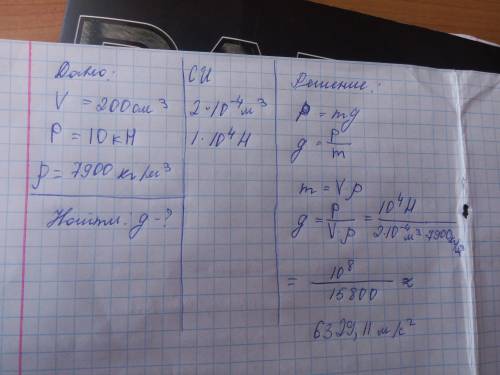 Дано:
V = 200 см³
P = 10 кН
ρ = 7900 кг/м³
Найти: g - ?
СИ
2·10⁻⁴ м³
1·10⁴ Н
Решение:
P = mg
g = P/m
m = Vρ
g = P/(V·ρ) = 10⁴Н/(2·10⁻⁴м³·7900кг/м³)
= 10⁸/15800 ≈
6329,11 м/с²